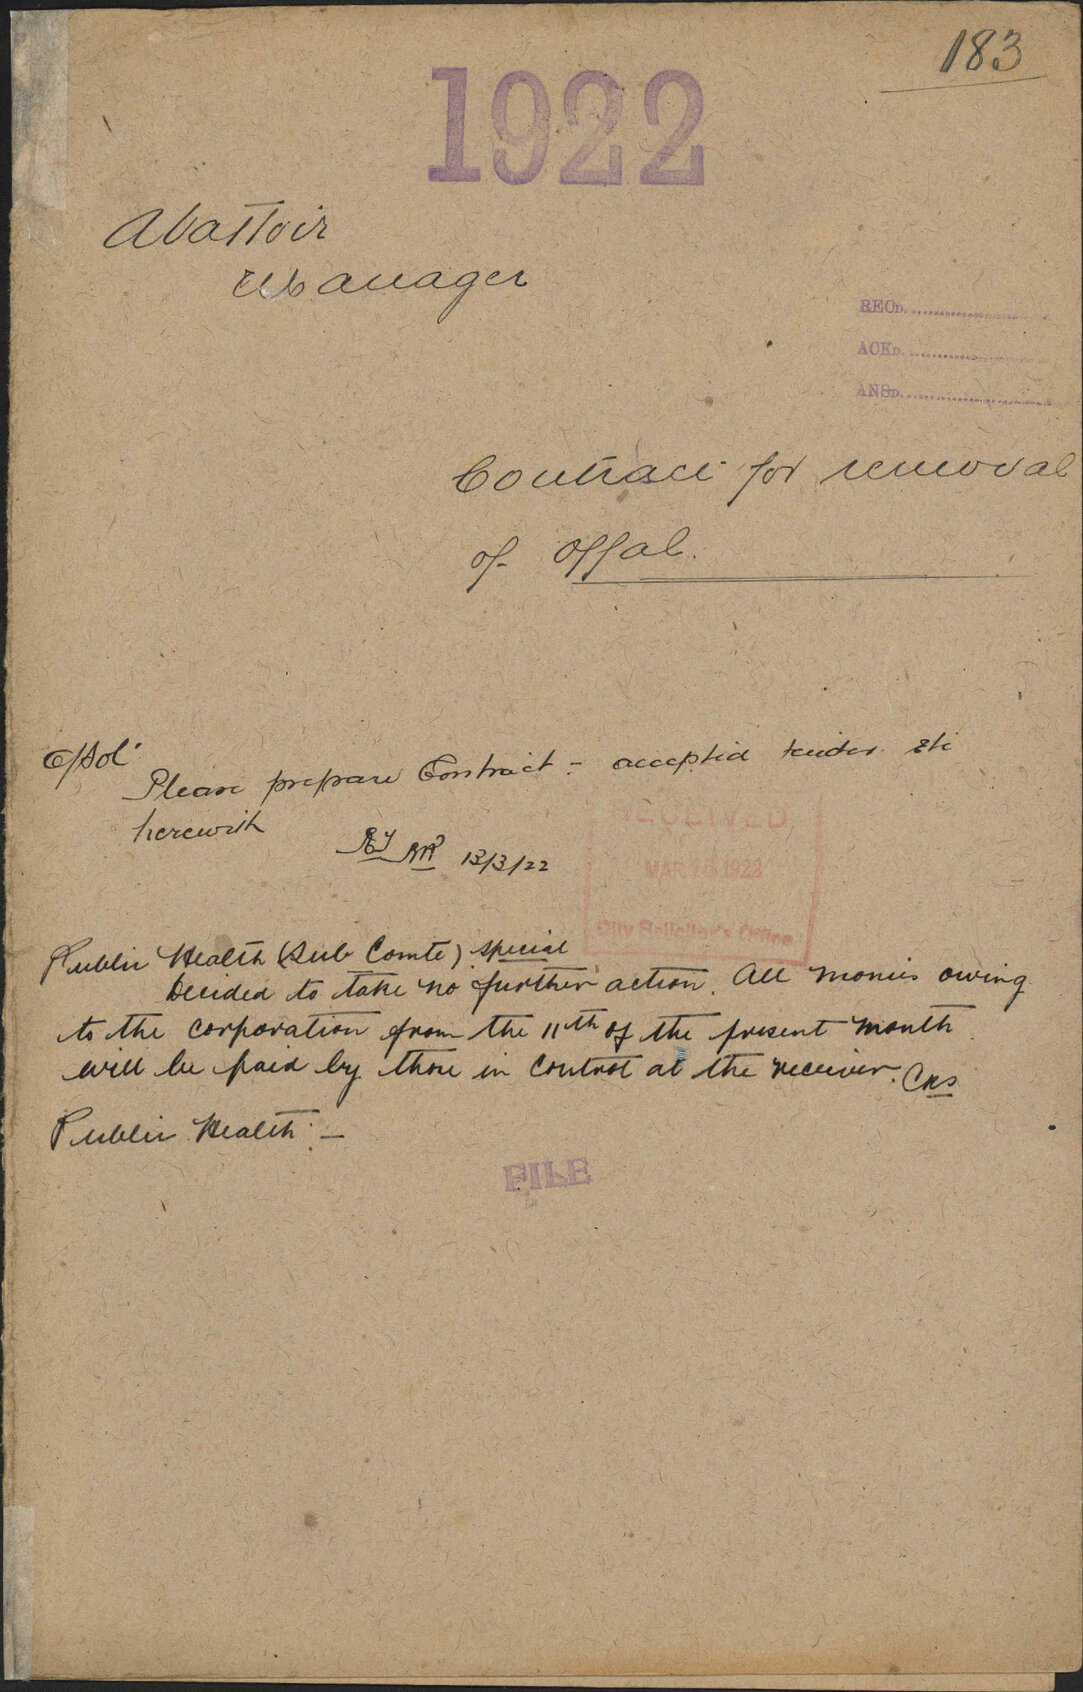 183
1922
Abattoir
Manager
RECD.
ACKD.
ANSD.
Contract for removal
of Offal.
C/Sol
Please prepare Contract - accepted tender etc
herewith
13/3/22
RECEIVED
MAR 1922
City Solicitor's Office
Public Health (Sub Comte) special
Decided to take no further action. All monies owing
to the corporation from the 11th of the present month
will be paid by those in control at the receiver.
Public Health: -
FILE